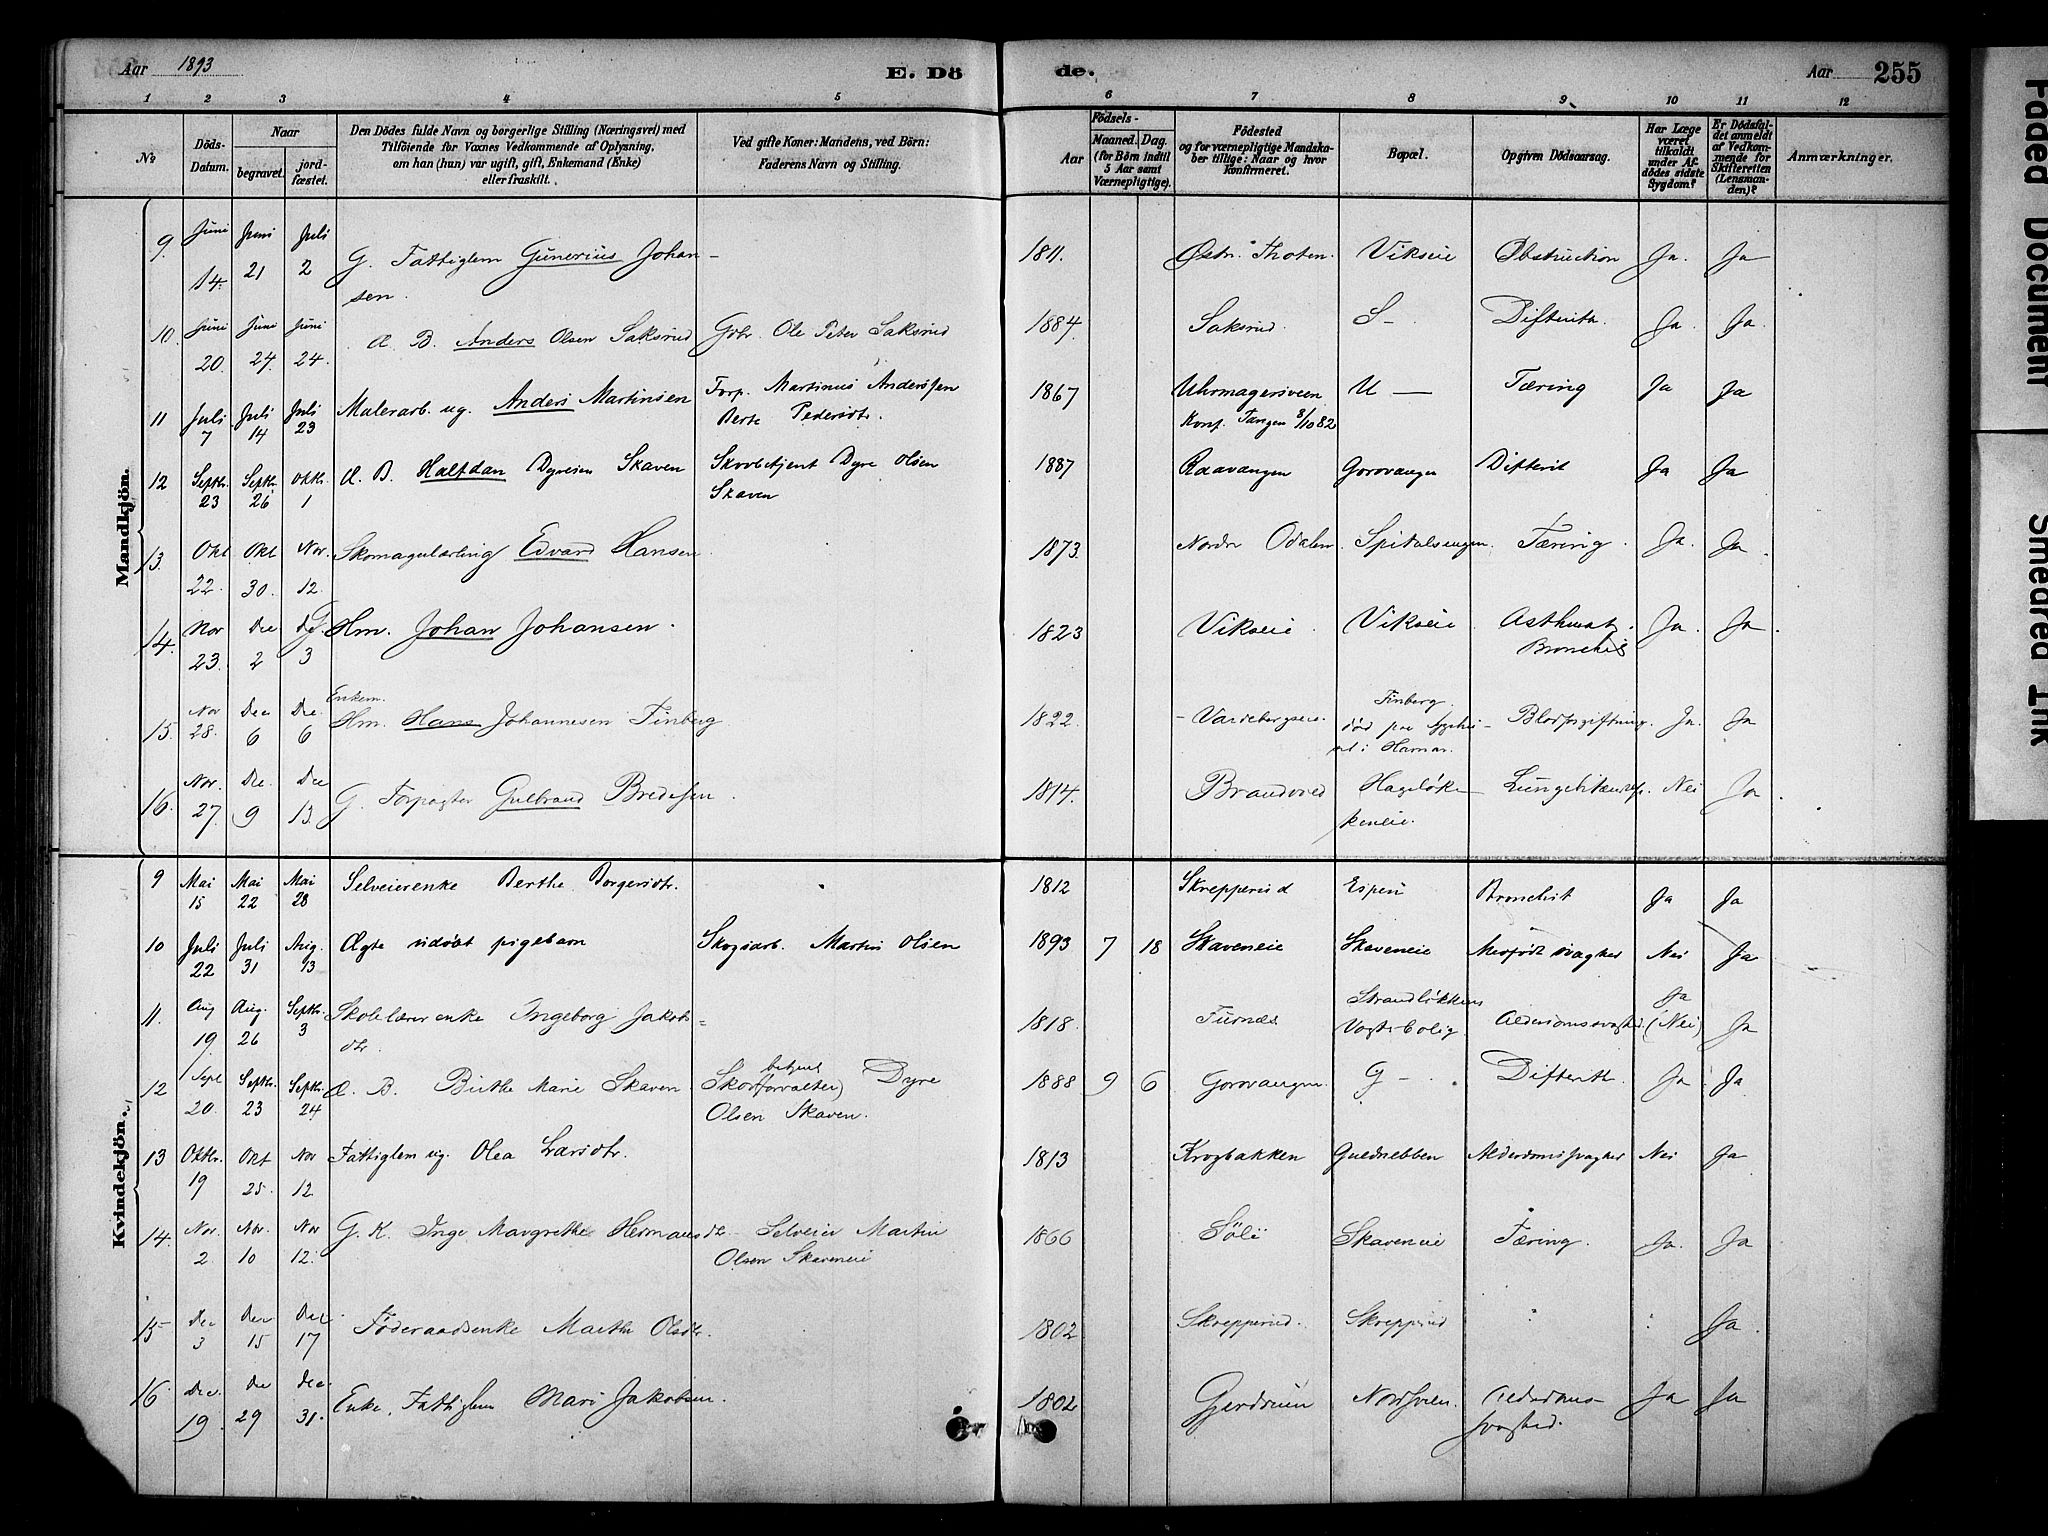 Aar 1893 E. Dö de. Aar 255
1 2 3 4 5 6 7 8 9 10 11 12
No
Döds-Datum.
Naar
begravet.
jordfæstet.
Den Dödes fulde Navn og borgerlige Stilling (Næringsvei) med
Tilföiende for Voxnes Vedkommende af Oplysning,
om han (hun) var ugift, gift, Enkemand (Enke)
eller fraskilt.
Ved gifte Koner: Mandens, ved Börn:
Faderens Navn og Stilling.
Födsels-
Aar
Maaned. Dag.
(for Börn indtil
5 Aar samt
Værnepligtige).
Födested
og for værnepligtige Mandskaber tillige: Naar og hvor
konfirmeret.
Bopæl.
Opgiven Dödsaarsag.
Har Læge været tilkaldt under Afdödes sidste Sygdom?
Er Dödsfaldet anmeldt af Vedkommende for Skifteretten (Lensmanden)?
Anmærkninger.
Mandkjön.
9. Juni 14. Juni 21 Juli 2 G. Fattiglem Gunerius Johansen. 1811. Østr. Thoten. Vikseie Obstruction Ja. Ja
10. Juni 20. Juni 24. Juni 24. Æ. B. Anders Olsen Saksrud Gbr. Ole Peter Saksrud 1884. Saksrud. S— Difterith. Ja. Ja.
11 Juli 7 Juli 14 Juli 23 Malerarb. ug. Anders Martinsen Forp. Martinus Anderssen Berte Pedersdtr. 1867 Uhrmagersveen Konf. Tangen 8/10 82 U— Tæring Ja Ja
12 Septbr. 23 Septbr. 26 Oktbr. 1 Æ. B. Halfdan Dyresen Skaven Skovbetjent Dyre Olsen Skaven 1887 Raavangen Gorovangen Difterit Ja Ja
13. Okt 22. Okt 30. Nov. 12. Skomagerlærling Edvard Hansen 1873. Nordre Odalen Spitalsengen. Tæring. Ja. Ja.
14. Nov 23. Dec 2 3 Hm. Johan Johansen. 1823 Vikseie. Vikseie. Asthmat. Bronchit Ja. Ja.
15. Nov 28. Dec 6 Dec. 6 Enkem. Hm. Hans Johannesen Finberg. 1822. Finberg. død paa i Hamar. Blodforgiftning. Ja. Ja
16. Nov. 27. Dec. 9 Dec 13. G. Forpagter Gulbrand Bredesen. 1814. Brandvold Hageløkkeneie. Nei Ja.
Kvindekjön.
9 Mai 15 Mai 22 Mai 28 Selveierenke Berthe Borgersdtr. 1812 Skrepperud Espen Bronchit Ja Ja
10 Juli 22 Juli 31 Aug. 13 Ægte udøbt pigebarn Skogsarb. Martin Olsen 1893 7 18 Skaveneie Skaveneie Medfødt svaghed Nei Ja
11. Aug 19. Aug. 26 Septbr. 3 Skolelærerenke Ingeborg Jakobsdtr. 1818. Furnæs Strandløkkens Vogterbolig Alderdomssvaghed. Ja (Nei) Ja
12 Sept 20. Septbr. 23 Septbr. 24 Æ. B. Birthe Marie Skaven. Skov(forvalter) betjent Dyre Olsen Skaven. 1888 9 6 Gorovangen. G—. Difterith. Ja. Ja.
13 Oktbr. 19 Okt 25. Nov 12 Fattiglem ug. Olea Larsdtr. 1813 Krogbakken Guldnebben Alderdomssvaghed Nei Ja
14. Nov. 2. Nov. 10 Nov 12. G. K. Inge Margrethe Hermansdtr. Selveier Martin Olsen Skaveneie 1866 Söli Skaveneie Tæring. Ja. Ja
15 Dec 3 Dec 15 Dec 17 Föderaadsenke Marthe Olsdtr. 1802 Skrepperud. Skrepperud " " Ja.
16. Dec. 19. Dec 29 Dec 31. Enke, Fattiglem Mari Jakobsen. 1802 Gjerdrum Nordsveen. Alderdomssvaghed. Ja Ja
Faded Document
Smedred Ink